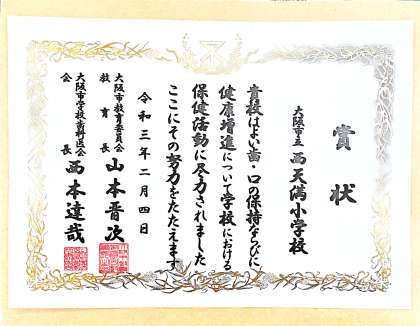 賞状
大阪市立 西天満小学校
貴校はよい歯・口の保持ならびに
健康増進について学校における
保健活動に尽力されました
ここにその努力をたたえます
令和三年二月四日
大阪市教育委員会
教育長 山本晋次
大阪市学校歯科医会
会長 西本達哉